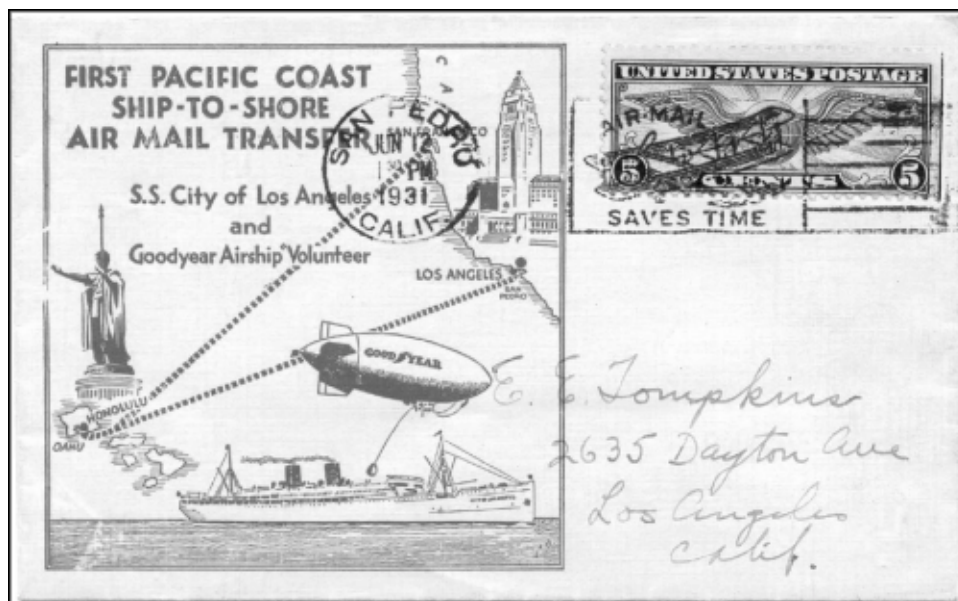 FIRST PACIFIC COAST
SHIP-TO-SHORE
AIR MAIL TRANSFER
S.S. City of Los Angeles
and
Goodyear Airship Volunteer
CA
SAN FRANCISCO
SAN PEDRO
JUN 12
PM
1931
CALIF.
LOS ANGELES
SAN
PEDRO
HONOLULU
OAHU
GOODYEAR
UNITED STATES POSTAGE
AIR-MAIL
5 CENTS 5
SAVES TIME
E. E. Tompkins
2635 Dayton Ave
Los Angeles
Calif.